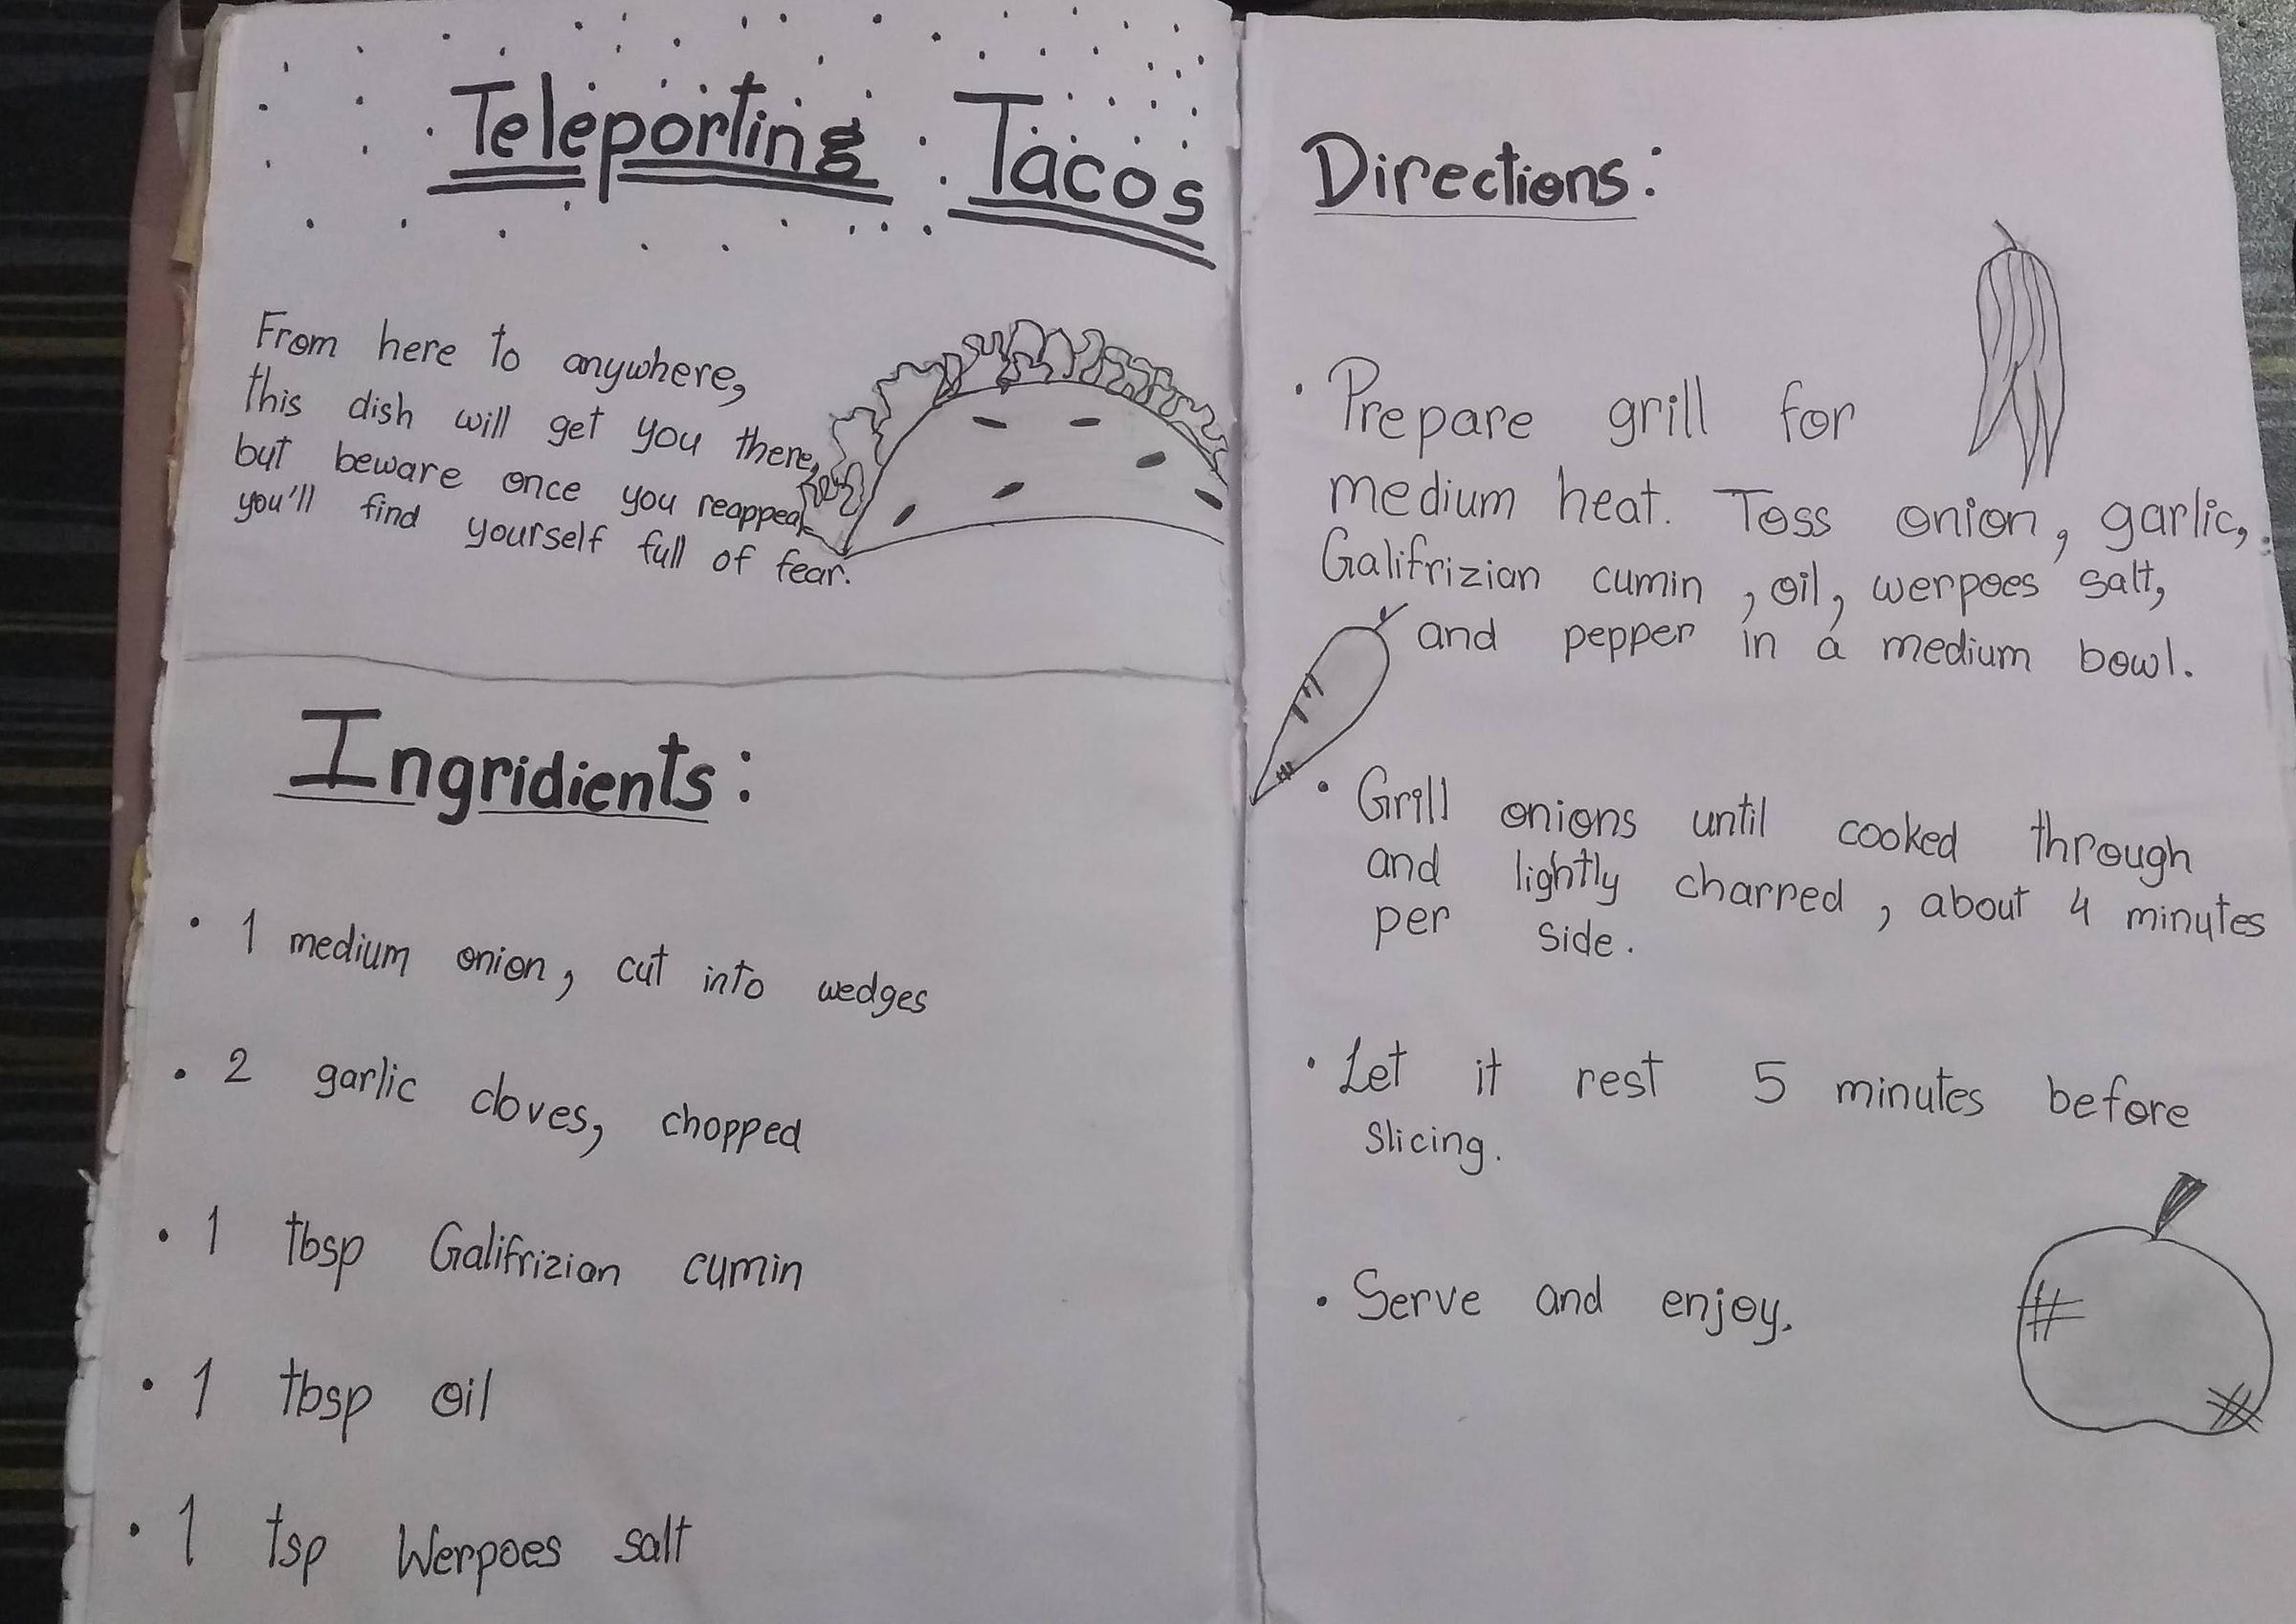 Teleporting Tacos
From here to anywhere,
this dish will get you there,
but beware once you reappear
you'll find yourself full of fear.
Ingridients:
• 1 medium onion, cut into wedges
• 2 garlic cloves, chopped
• 1 tbsp Galifrizian cumin
• 1 tbsp oil
• 1 tsp Werpoes salt
Directions:
• Prepare grill for
medium heat. Toss onion, garlic,
Galifrizian cumin, oil, werpoes salt,
and pepper in a medium bowl.
• Grill onions until cooked through
and lightly charred, about 4 minutes
per side.
• Let it rest 5 minutes before
slicing.
• Serve and enjoy.